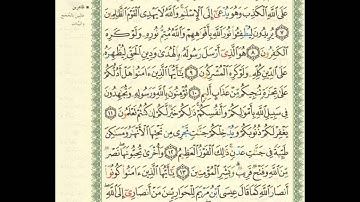 عَلَى ٱللَّهِ ٱلْكَذِبَ وَهُوَ يُدْعَىٰٓ إِلَى ٱلْإِسْلَٰمِ وَٱللَّهُ لَا يَهْدِى ٱلْقَوْمَ ٱلظَّٰلِمِينَ
٧ يُرِيدُونَ لِيُطْفِـُٔوا۟ نُورَ ٱللَّهِ بِأَفْوَٰهِهِمْ وَٱللَّهُ مُتِمُّ نُورِهِۦ وَلَوْ كَرِهَ
ٱلْكَٰفِرُونَ ٨ هُوَ ٱلَّذِىٓ أَرْسَلَ رَسُولَهُۥ بِٱلْهُدَىٰ وَدِينِ ٱلْحَقِّ لِيُظْهِرَهُۥ
عَلَى ٱلدِّينِ كُلِّهِۦ وَلَوْ كَرِهَ ٱلْمُشْرِكُونَ ٩ يَٰٓأَيُّهَا ٱلَّذِينَ ءَامَنُوا۟ هَلْ أَدُلُّكُمْ
عَلَىٰ تِجَٰرَةٍ تُنجِيكُم مِّنْ عَذَابٍ أَلِيمٍ ١٠ تُؤْمِنُونَ بِٱللَّهِ وَرَسُولِهِۦ وَتُجَٰهِدُونَ
فِى سَبِيلِ ٱللَّهِ بِأَمْوَٰلِكُمْ وَأَنفُسِكُمْ ذَٰلِكُمْ خَيْرٌ لَّكُمْ إِن كُنتُمْ تَعْلَمُونَ ١١
يَغْفِرْ لَكُمْ ذُنُوبَكُمْ وَيُدْخِلْكُمْ جَنَّٰتٍ تَجْرِى مِن تَحْتِهَا ٱلْأَنْهَٰرُ وَمَسَٰكِنَ
طَيِّبَةً فِى جَنَّٰتِ عَدْنٍ ذَٰلِكَ ٱلْفَوْزُ ٱلْعَظِيمُ ١٢ وَأُخْرَىٰ تُحِبُّونَهَا نَصْرٌ مِّنَ
ٱللَّهِ وَفَتْحٌ قَرِيبٌ وَبَشِّرِ ٱلْمُؤْمِنِينَ ١٣ يَٰٓأَيُّهَا ٱلَّذِينَ ءَامَنُوا۟ كُونُوٓا۟
أَنصَارَ ٱللَّهِ كَمَا قَالَ عِيسَى ٱبْنُ مَرْيَمَ لِلْحَوَارِيِّـۧنَ مَنْ أَنصَارِىٓ إِلَى ٱللَّهِ